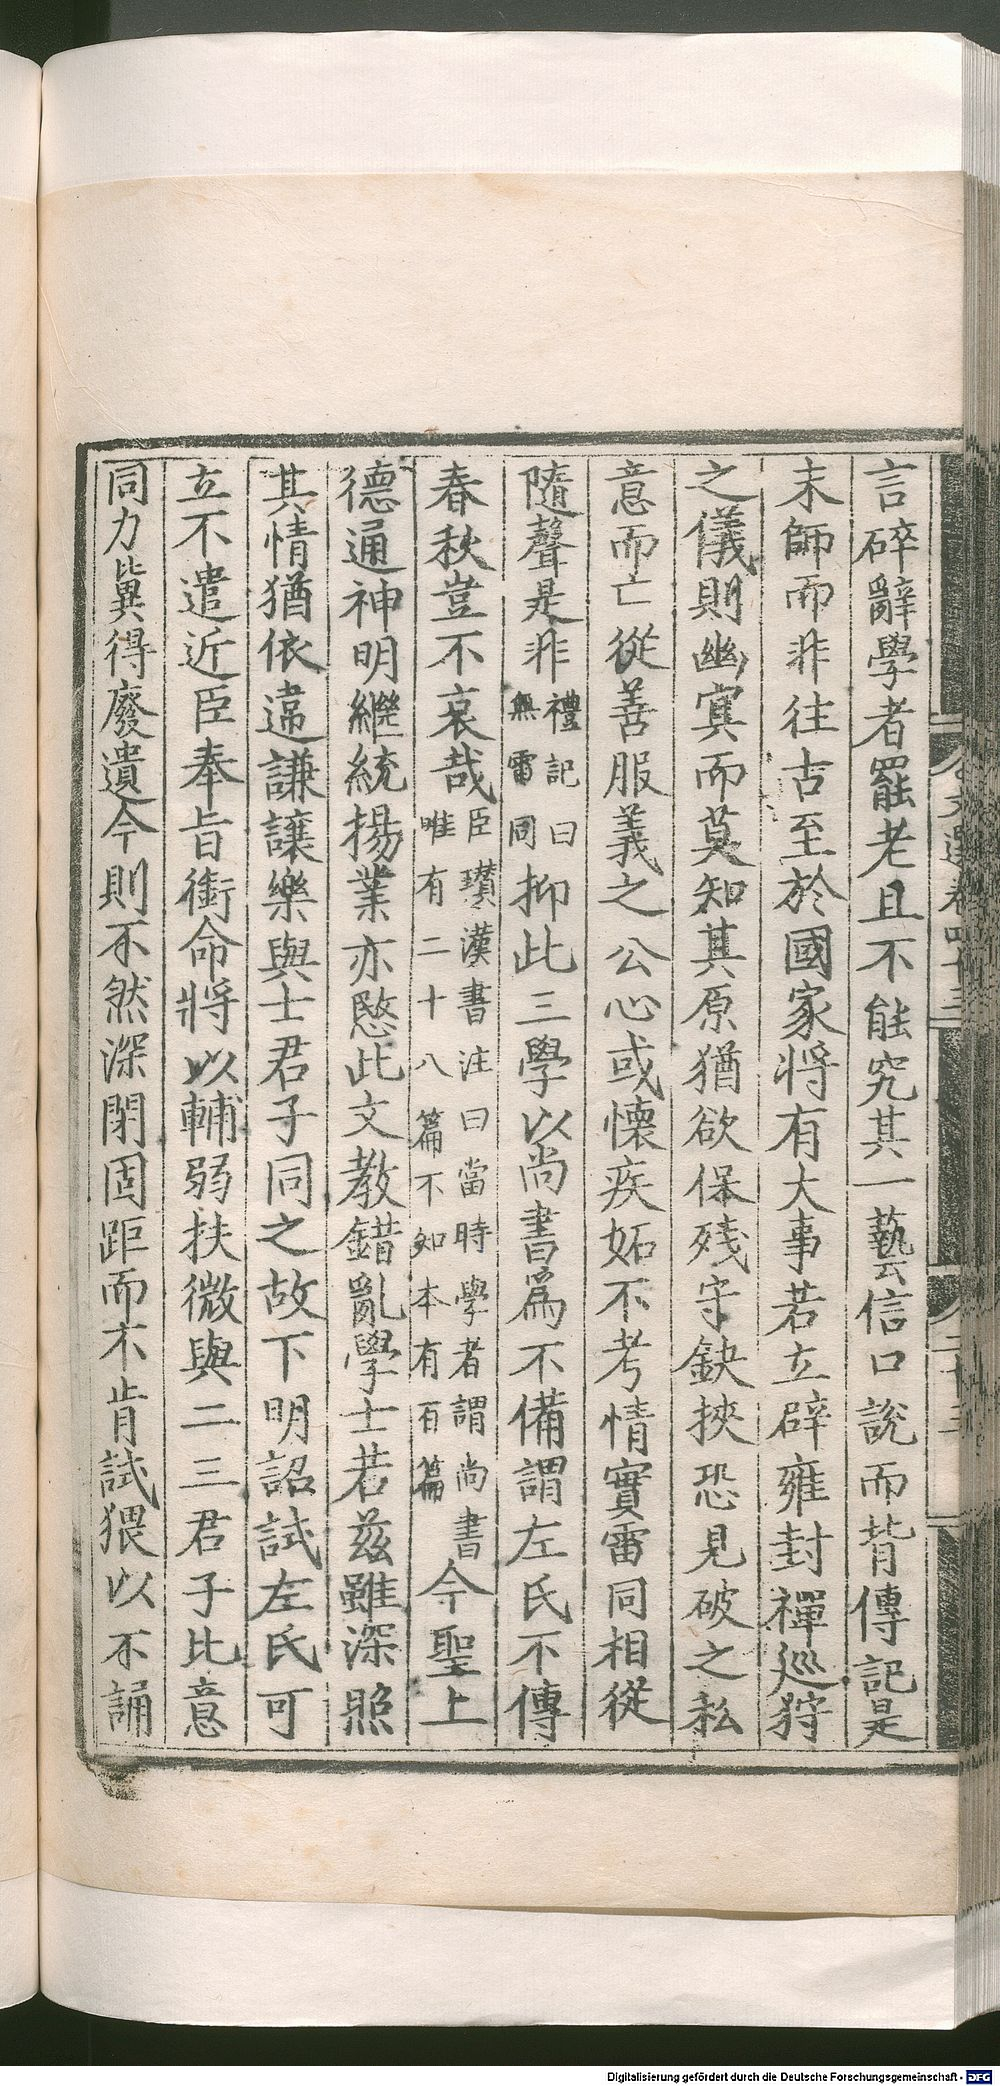 言碎辭學者罷老且不能究其一藝信口說而背傳記是
末師而非往古至於國家將有大事若立辟雍封禪巡狩
之儀則幽㝠而莫知其原猶欲保殘守缺挾恐見破之私
意而亡從善服義之公心或懷疾妬不考情實雷同相從
隨聲是非禮記曰無雷同抑此三學以尚書爲不備謂左氏不傳
春秋豈不哀哉臣瓚漢書注曰當時學者謂尚書唯有二十八篇不知本有百篇今聖上
德通神明繼統揚業亦愍此文教錯亂學士若茲雖深照
其情猶依違謙讓樂與士君子同之故下明詔試左氏可
立不遣近臣奉旨銜命將以輔弱扶微與二三君子比意
同力冀得廢遺今則不然深閉固距而不肯試猥以不誦
文選卷四十三
二十三
Digitalisierung gefördert durch die Deutsche Forschungsgemeinschaft - DFG